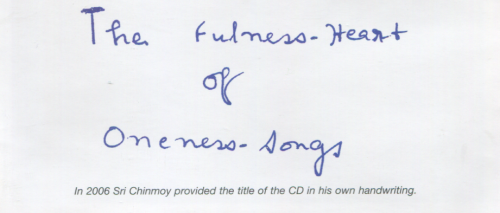 The Fulness-Heart
of
Oneness-Songs
In 2006 Sri Chinmoy provided the title of the CD in his own handwriting.